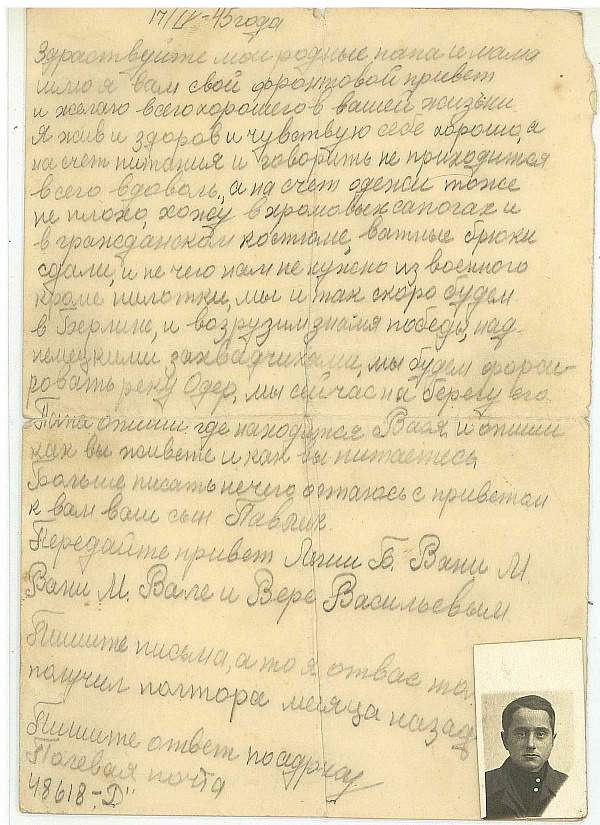 17/IV-45 года
Здраствуйте мои родные папа и мама
шлю я вам свой фронтовой привет
и желаю всего хорошего в вашей жизни
Я жив и здоров и чувствую себе хорошо, а
на счет питания и говорить не приходится
всего вдоволь, а на счет одежи тоже
не плохо, хожу в хромовых сапогах и
в гражданском костюме, ватные брюки
сдали, и не чего нам не нужно из военного
кроме пилотки, мы и так скоро будем
в Берлине, и возрузим знамя победы, над
немецкими захвадчихами, мы будем форси-
ровать реку Одер, мы сейчас на берегу его.
Папа опиши где находится Вася, и опиши
как вы живете и как вы питаетесь
Больше писать нечего, остаюсь с приветом
к вам ваш сын Павлик.
Передайте привет Лёнии Б. Вани М.
Вани М. Вале и Вере Васильевым.
Пишите письма, а то я от вас
получил полтора месяца назад
Пишите ответ по адрксу
Полевая почта
48618-„Д"